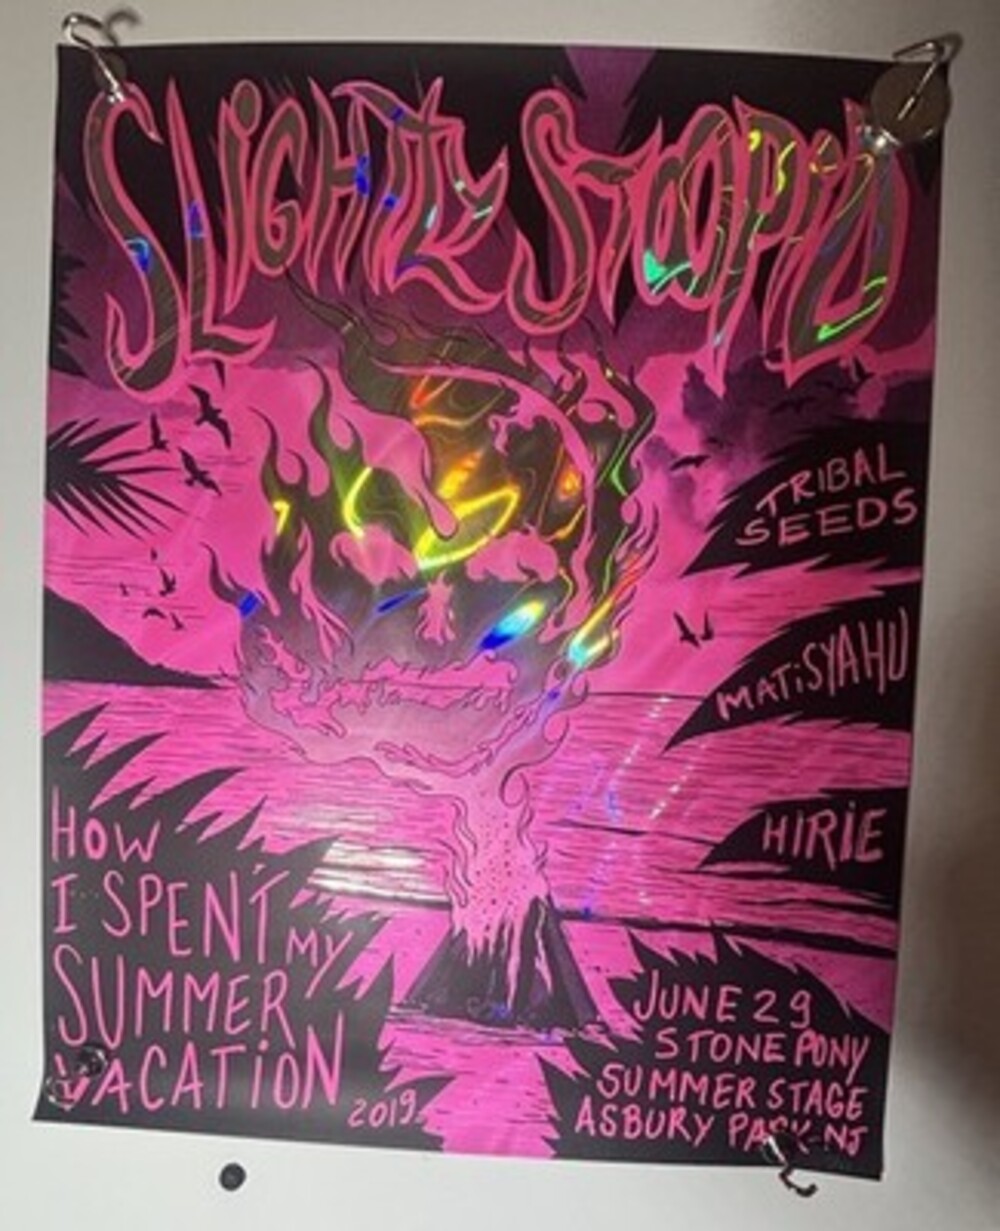 SLiGHTLY STOOPiD
TRIBAL
SEEDS
MATiSYAHU
HIRiE
HOW
I SPENT MY
SUMMER
VACATiON
2019
JUNE 29
STONE PONY
SUMMER STAGE
ASBURY PARK NJ